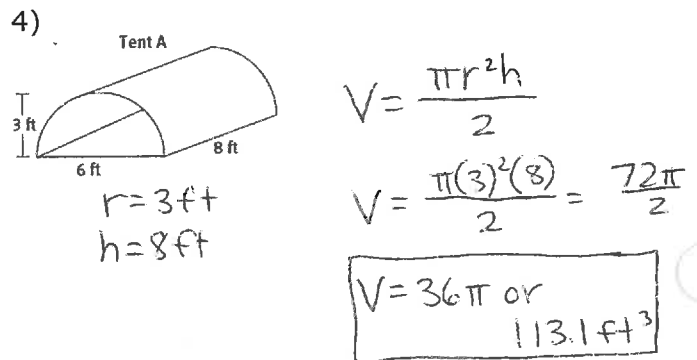 4)
Tent A
3 ft
6 ft
8 ft
r = 3ft
h = 8ft
V = πr²h / 2
V = π(3)²(8) / 2 = 72π / 2
V = 36π or
113.1 ft³